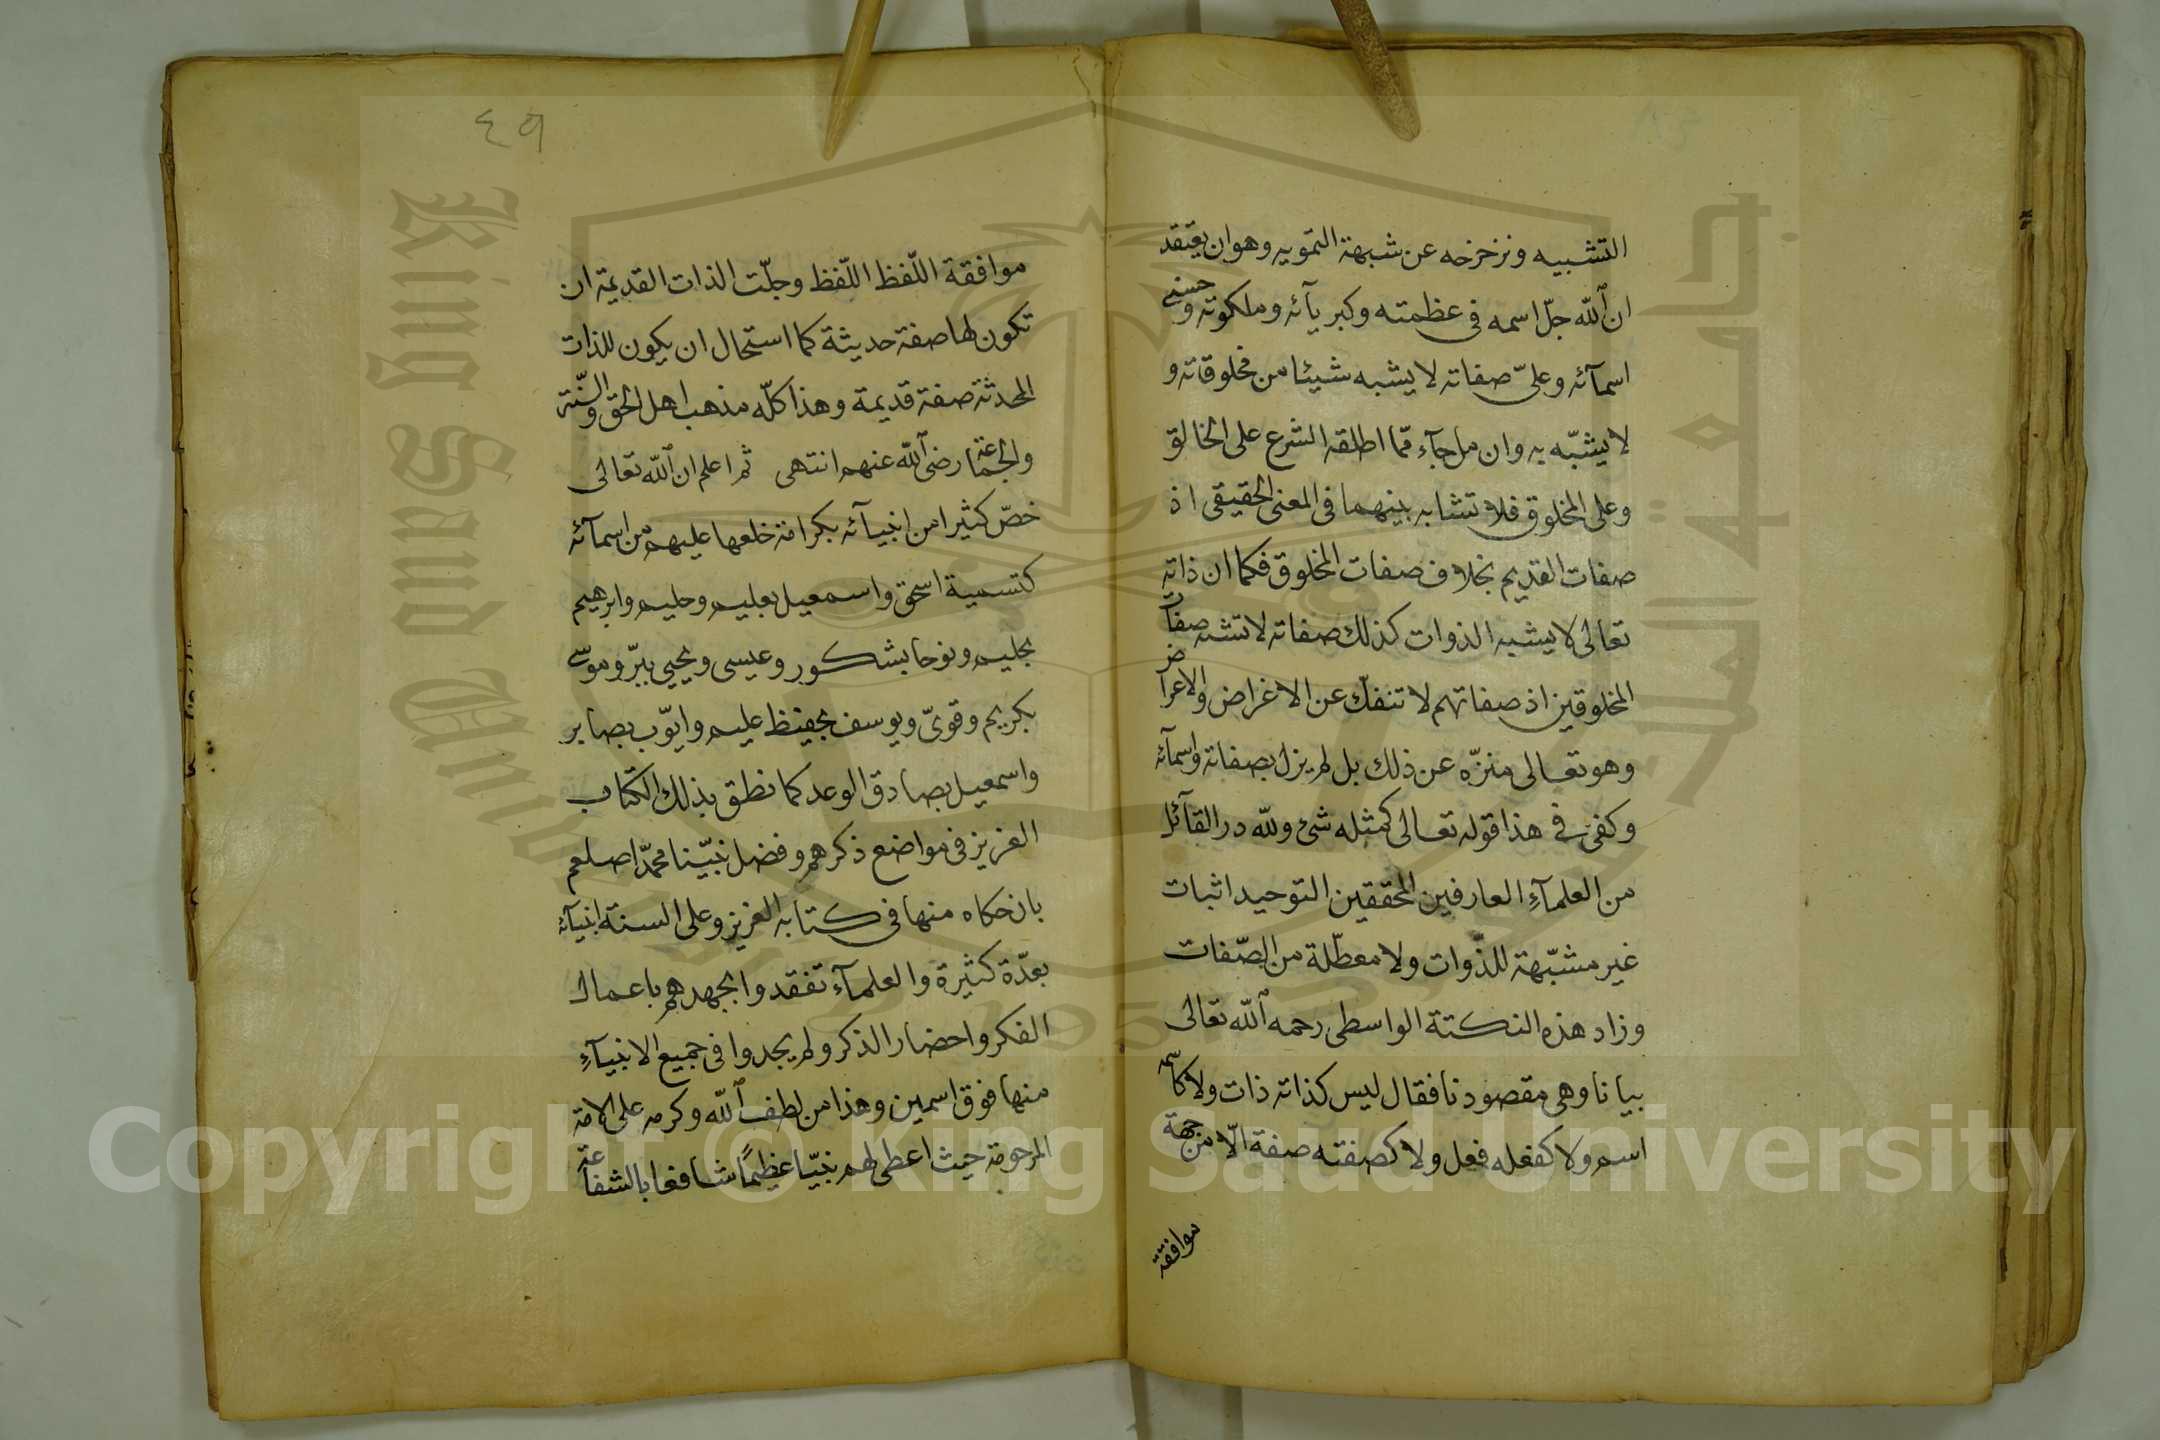 التشبيه ونزخزخه عن شبهة التمويه وهو ان يعتقد
ان الله جلّ اسمه فى عظمته وكبريآئه وملكوته وحسنى
اسمآئه وعلىّ صفاته لا يشبه شيئا من مخلوقاته و
لا يشبّه به وان ما جآء ممّا اطلقه الشرع على الخالق
وعلى المخلوق فلا تشابه بينهما فى المعنى الحقيقى اذ
صفات القديم بخلاف صفات المخلوق فكما ان ذاته
تعالى لا يشبه الذوات كذلك صفاته لا تشبه صفات
المخلوقين اذ صفاتهم لا تنفكّ عن الاغراض والاعراض
وهو تعالى منزّه عن ذلك بل لم يزل بصفاته واسمآئه
وكفى فى هذا قوله تعالى كمثله شئ ولله در القآئل
من العلمآءِ العارفين المحققين التوحيد اثبات
غير مشبّهة للذّوات ولا معطّلة من الصّفات
وزاد هذه النكتة الواسطى رحمه الله تعالى
بيانا وهى مقصودنا فقال ليس كذاته ذات ولا كاسمه
اسم ولا كفعله فعل ولا كصفته صفة الّا من جهة
موافقة
٤٩
موافقة اللّفظ اللّفظ وجلّت الذات القديمة ان
تكون لها صفة حديثة كما استحال ان يكون للذات
المحدثة صفة قديمة وهذا كلّه مذهب اهل الحق والسّنّة
والجماعة رضى الله عنهم انتهى ثم اعلم ان الله تعالى
خصّ كثيرا من انبيآئه بكرامة خلعها عليهم من اسمآئه
كتسمية اسحق واسمعيل بعليم وحليم وابرهيم
بحليم ونوحا بشكور وعيسى ويحيى ببرّ وموسى
بكريم وقوىّ ويوسف بحفيظ عليم وايوّب بصابر
واسمعيل بصادق الوعد كما نطق بذلك الكتاب
العزيز فى مواضع ذكرهم وفضل نبيّنا محمدّا صلعم
بان حكاه منها فى كتابه العزيز وعلى السنة انبيآئه
بعدّة كثيرة والعلمآء تفقدوا بجهدهم باعمال
الفكر واحضار الذكر ولم يجدوا فى جميع الانبيآءِ
منها فوق اسمين وهذا من لطف الله وكرمه على الامة
المرحومة حيث اعطى لهم نبيّا عظيمًا شافعا بالشفاعة
King Saud University
جامعة الملك سعود
1957
Copyright © King Saud University